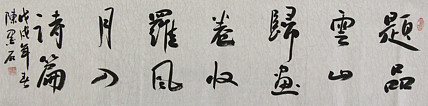 題品
雲山
歸畫
卷收
羅風
月入
詩篇
戊戌年春
陳墨石